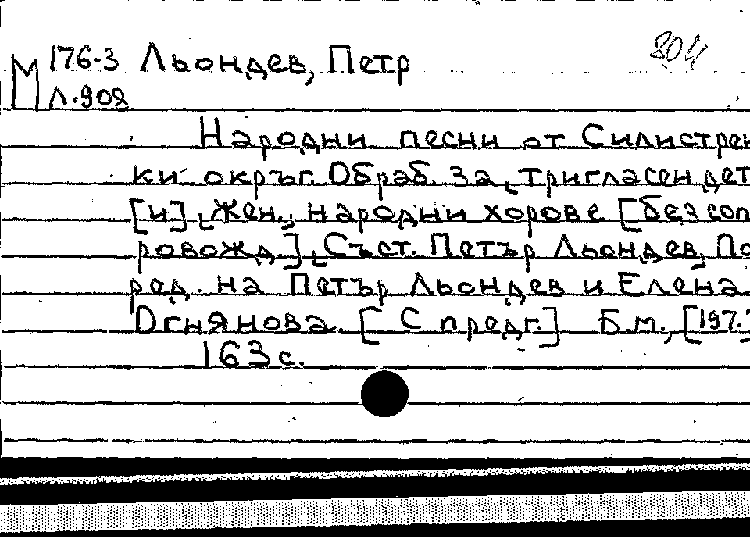 М 176-3 Льондев, Петр 804
Л.908
Народни песни от Силистрен
ки окръг. Обраб. за тригласен дет
[и] жен. народни хорове [без соп
ровожд.]. Съст. Петър Льондев, По
ред. на Петър Льондев и Елена
Огнянова. [С предг.] Б.м., [197.
163 с.